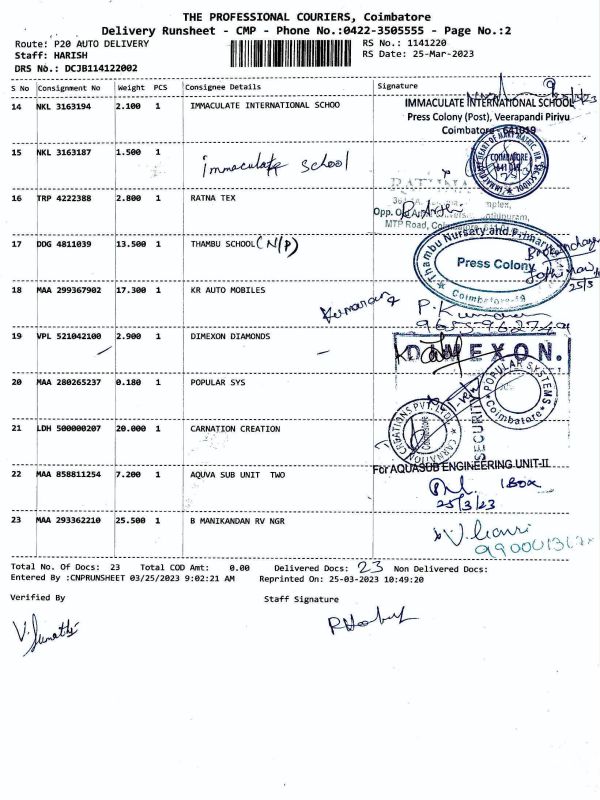 THE PROFESSIONAL COURIERS, Coimbatore
Delivery Runsheet - CMP - Phone No.:0422-3505555 - Page No.:2
Route: P20 AUTO DELIVERY
RS No.: 1141220
Staff: HARISH
RS Date: 25-Mar-2023
DRS No.: DCJB114122002
S No Consignment No Weight PCS Consignee Details Signature
14 NKL 3163194 2.100 1 IMMACULATE INTERNATIONAL SCHOO
IMMACULATE INTERNATIONAL SCHOOL
Press Colony (Post), Veerapandi Pirivu
Coimbatore - 641019
15 NKL 3163187 1.500 1 Immaculate School
COIMBATORE
16 TRP 4222388 2.800 1 RATNA TEX
MTP Road,
17 DDG 4811039 13.500 1 THAMBU SCHOOL (N/P)
Thambu Nursery and Primary
Press Colony
Coimbatore-19
25/3
18 MAA 299367902 17.300 1 KR AUTO MOBILES
Kumaran
P. Kumaran
19 VPL 521042100 2.900 1 DIMEXON DIAMONDS
DIMEXON.
SECURITY
20 MAA 280265237 0.180 1 POPULAR SYS
POPULAR SYSTEMS
Coimbatore
21 LDH 500000207 20.000 1 CARNATION CREATION
CARNATION CREATIONS PVT. LTD.
Coimbatore
22 MAA 858811254 7.200 1 AQUVA SUB UNIT TWO
For AQUASUB ENGINEERING UNIT-II
1 Box
25/3/23
23 MAA 293362210 25.500 1 B MANIKANDAN RV NGR
Total No. Of Docs: 23 Total COD Amt: 0.00 Delivered Docs: 23 Non Delivered Docs:
Entered By :CNPRUNSHEET 03/25/2023 9:02:21 AM Reprinted On: 25-03-2023 10:49:20
Verified By
Staff Signature